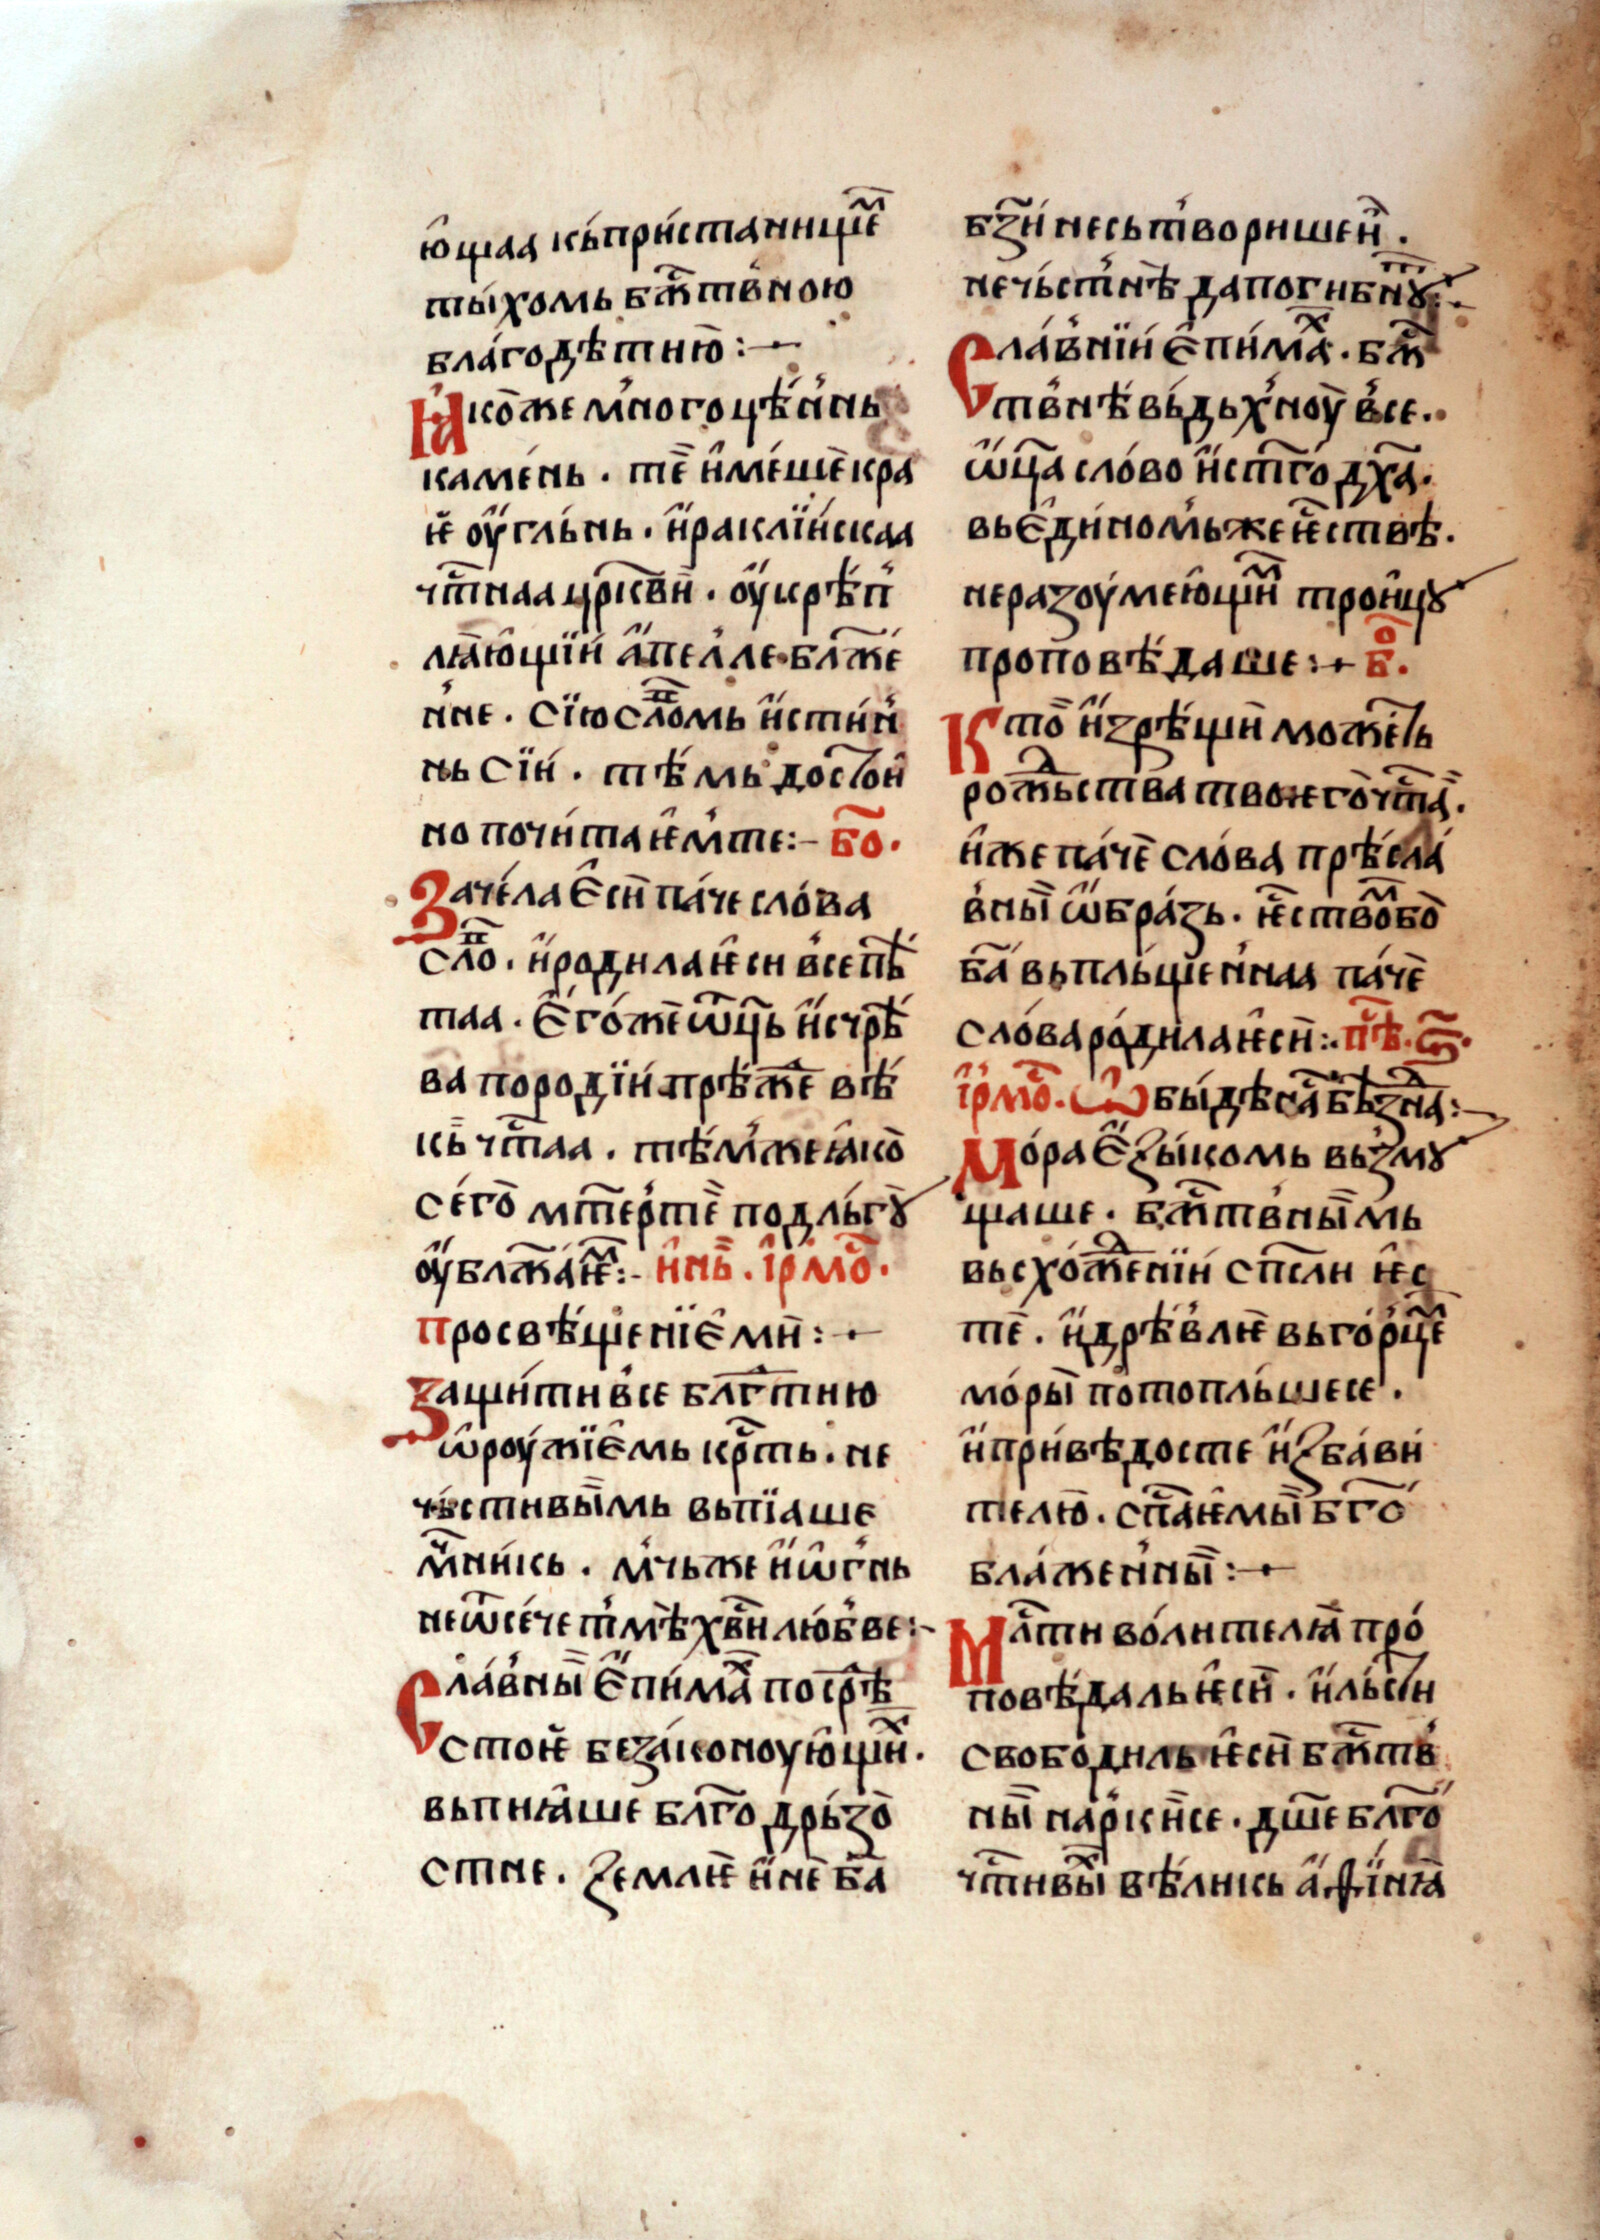 ю҆щаа кь пристанищеⷨ
тыхомь бжⷭ҇твною
благодѣтию :—
Ꙗкоже многоцѣннь
камень . тѣ҃ имеше кра
ѥ оугльнь . ираклїискаа
чтⷭ҇наа црк҃ви . оукрѣп
лꙗющїи апелле блаже
нне . сїю слⷪ҇помь истин
нь сїи . тѣмь достои
но почитаѥмте :– б҃о·
Зачела ѥси паче слова
слⷪ҇по . и родила ѥси всепѣ
таа . ѥгоже ѿц҃ь исчрѣ
ва породїи прѣжⷣе вѣ
кь чтⷭ҇аа . тѣмже ꙗко
сего мт҃ере те подльгꙋ
оублажаѥⷨ :– инь . ірмоⷭ·
просвѣщенїѥ ми :—
Защити все блгⷣтию
ѡроужїѥмь крⷭ҇ть . не
чьстивымь вьпїаше
мⷱ҇никь . мчь же и ѡгнь
не ѿсече тⷨѣ хв҃и любве :–
Славны ѥпимаⷯ посрⷣѣ
стоѥ безаконоующиⷯ .
вьпиꙗше блг҃о дрьзо
стне . землѥ и не б҃а
б꙯зи не сьтворише и .
нечьстнѣ да погибнꙋⷮ :–
Славнїи ѥпимаⷯ . бжⷭ҇
твнѣ вьдьхноу все .
ѿц҃а слово и ст҃го дх҃а .
вь ѥдиномь же ѥⷭ҇ствѣ .
не разоумеющиⷨ троицꙋ
проповѣдаше :— боⷢ .
Кто изрѣщи можеть
рожⷣьства твоѥго чтⷭ҇аа .
иже паче слова прѣсла
вны ѡбразь . ѥⷭ҇ствоⷨ бо
б҃а вьпльщенна паче
слова родила ѥси :· пѣⷭ · ѕ҃ ·
ірмоⷭ · Ѡбыде сⷭ҇а безⷣна :—
Мора ѥзыкомь вьзмꙋ
щаше . бжⷭ҇твнымь
вьсхожⷣенїи спⷭ҇ли ѥс
те . и древлѥ вь горцеⷨ
моры потопльшесе .
и приведосте избави
телю . спⷭ҇аѥмы бг҃о
блаженны :—
Млⷭ҇ти волителꙗ про
повѣдаль ѥси . и льсти
свободиль ѥси бжⷭ҇тв
ны нарькисе . дш҃е блг҃о
чтⷭ҇ивыⷯ великь аѳїниꙗ